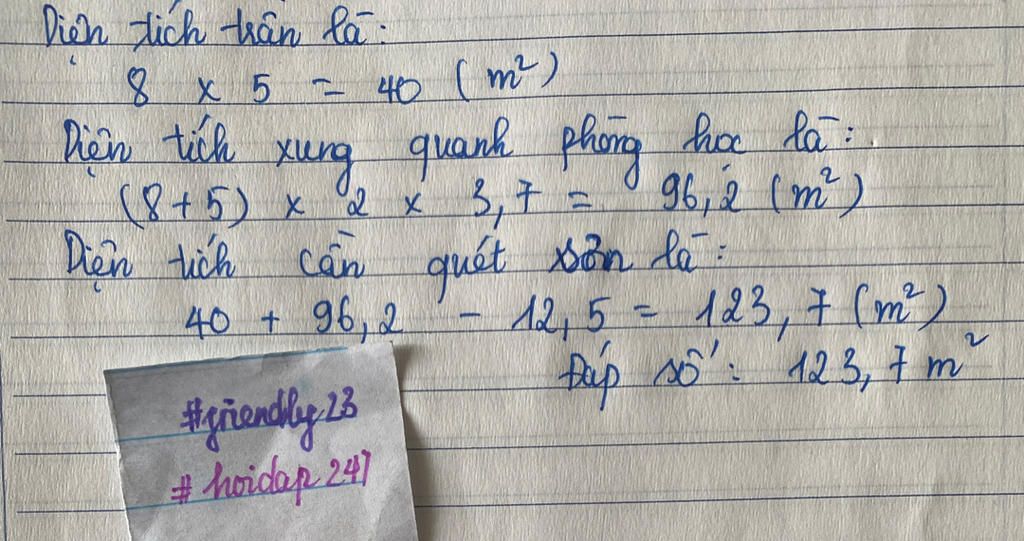 Diện tích trần là:
8 x 5 = 40 (m²)
Diện tích xung quanh phòng học là:
(8+5) x 2 x 3,7 = 96,2 (m²)
Diện tích cần quét sơn là:
40 + 96,2 - 12,5 = 123,7 (m²)
Đáp số: 123,7 m²
#friendly23
#hoidap247